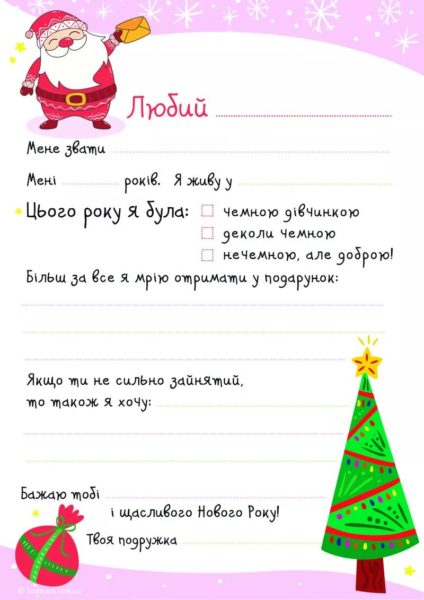 Любий
Мене звати
Мені років. Я живу у
Цього року я була: чемною дівчинкою
деколи чемною
нечемною, але доброю!
Більш за все я мрію отримати у подарунок:
Якщо ти не сильно зайнятий,
то також я хочу:
Бажаю тобі
і щасливого Нового Року!
Твоя подружка